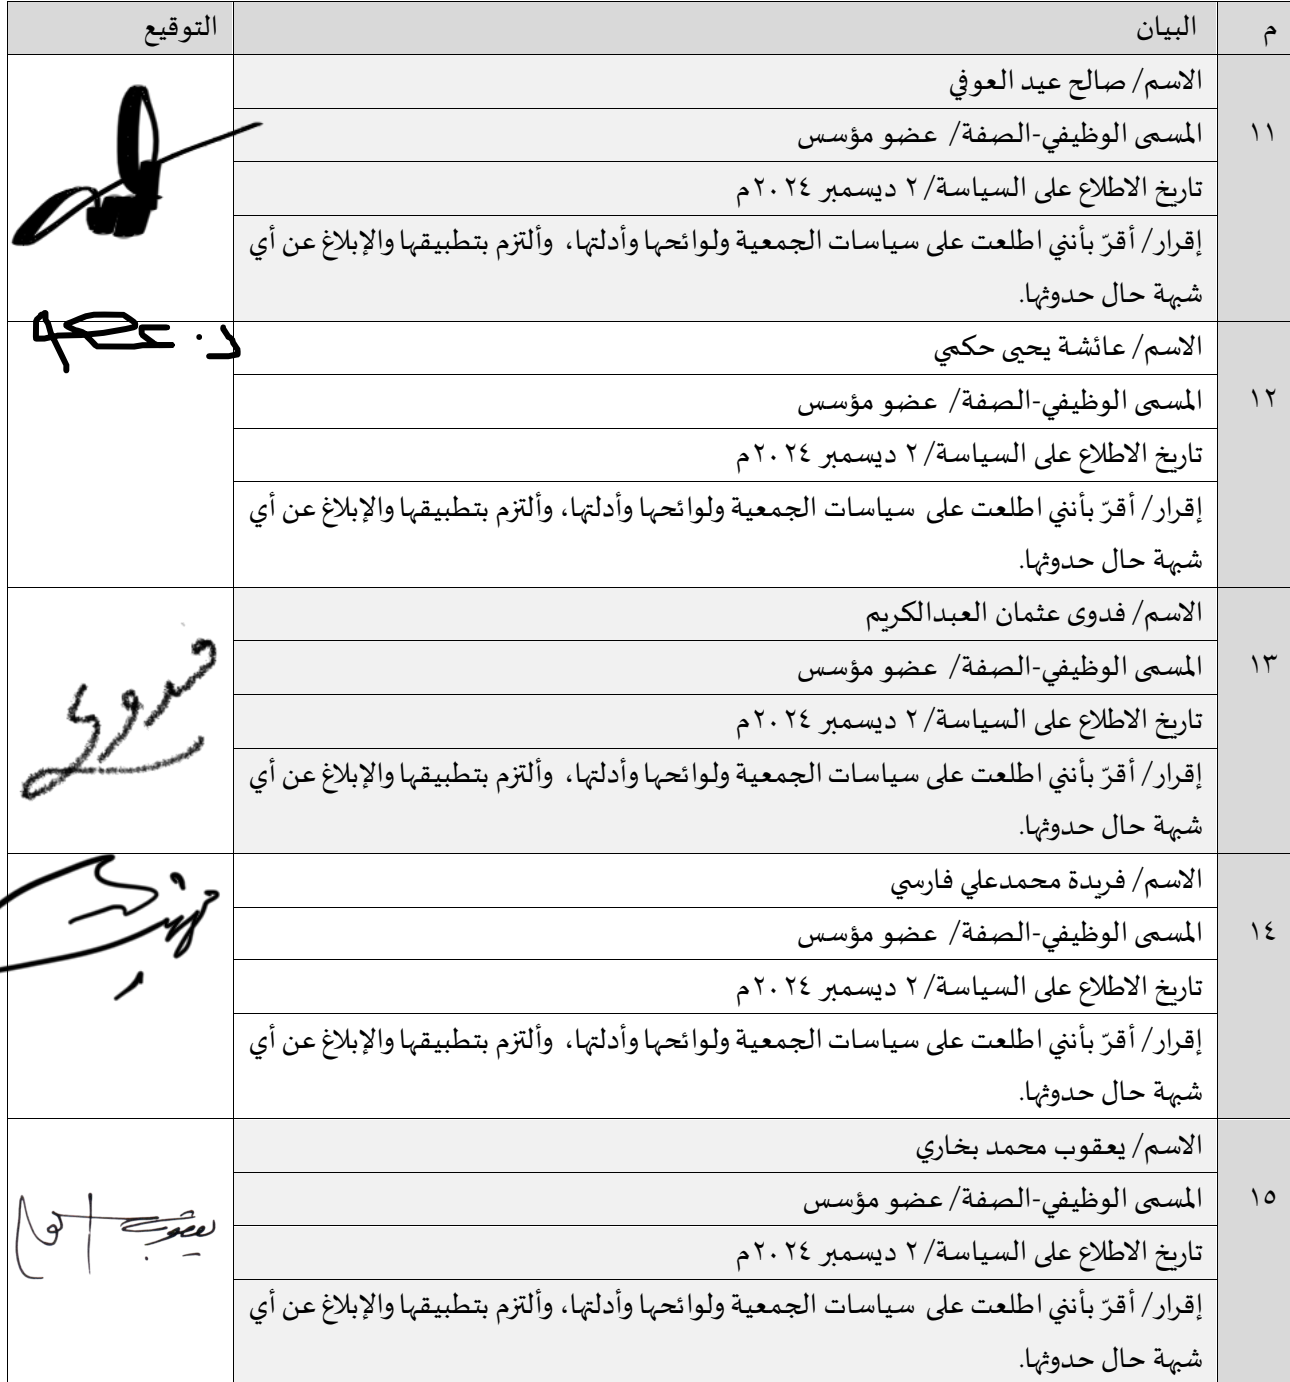 م البيان التوقيع
الاسم/ صالح عيد العوفي
١١ المسمى الوظيفي-الصفة/ عضو مؤسس
تاريخ الاطلاع على السياسة/ ٢ ديسمبر ٢٠٢٤م
إقرار/ أقرّ بأنني اطلعت على سياسات الجمعية ولوائحها وأدلتها، وألتزم بتطبيقها والإبلاغ عن أي
شبهة حال حدوثها.
الاسم/ عائشة يحيى حكمي
١٢ المسمى الوظيفي-الصفة/ عضو مؤسس
تاريخ الاطلاع على السياسة/ ٢ ديسمبر ٢٠٢٤م
إقرار/ أقرّ بأنني اطلعت على سياسات الجمعية ولوائحها وأدلتها، وألتزم بتطبيقها والإبلاغ عن أي
شبهة حال حدوثها.
الاسم/ فدوى عثمان العبدالكريم
١٣ المسمى الوظيفي-الصفة/ عضو مؤسس
فدوى
تاريخ الاطلاع على السياسة/ ٢ ديسمبر ٢٠٢٤م
إقرار/ أقرّ بأنني اطلعت على سياسات الجمعية ولوائحها وأدلتها، وألتزم بتطبيقها والإبلاغ عن أي
شبهة حال حدوثها.
الاسم/ فريدة محمدعلي فارسي
١٤ المسمى الوظيفي-الصفة/ عضو مؤسس
تاريخ الاطلاع على السياسة/ ٢ ديسمبر ٢٠٢٤م
إقرار/ أقرّ بأنني اطلعت على سياسات الجمعية ولوائحها وأدلتها، وألتزم بتطبيقها والإبلاغ عن أي
شبهة حال حدوثها.
الاسم/ يعقوب محمد بخاري
١٥ المسمى الوظيفي-الصفة/ عضو مؤسس
يعقوب
تاريخ الاطلاع على السياسة/ ٢ ديسمبر ٢٠٢٤م
إقرار/ أقرّ بأنني اطلعت على سياسات الجمعية ولوائحها وأدلتها، وألتزم بتطبيقها والإبلاغ عن أي
شبهة حال حدوثها.